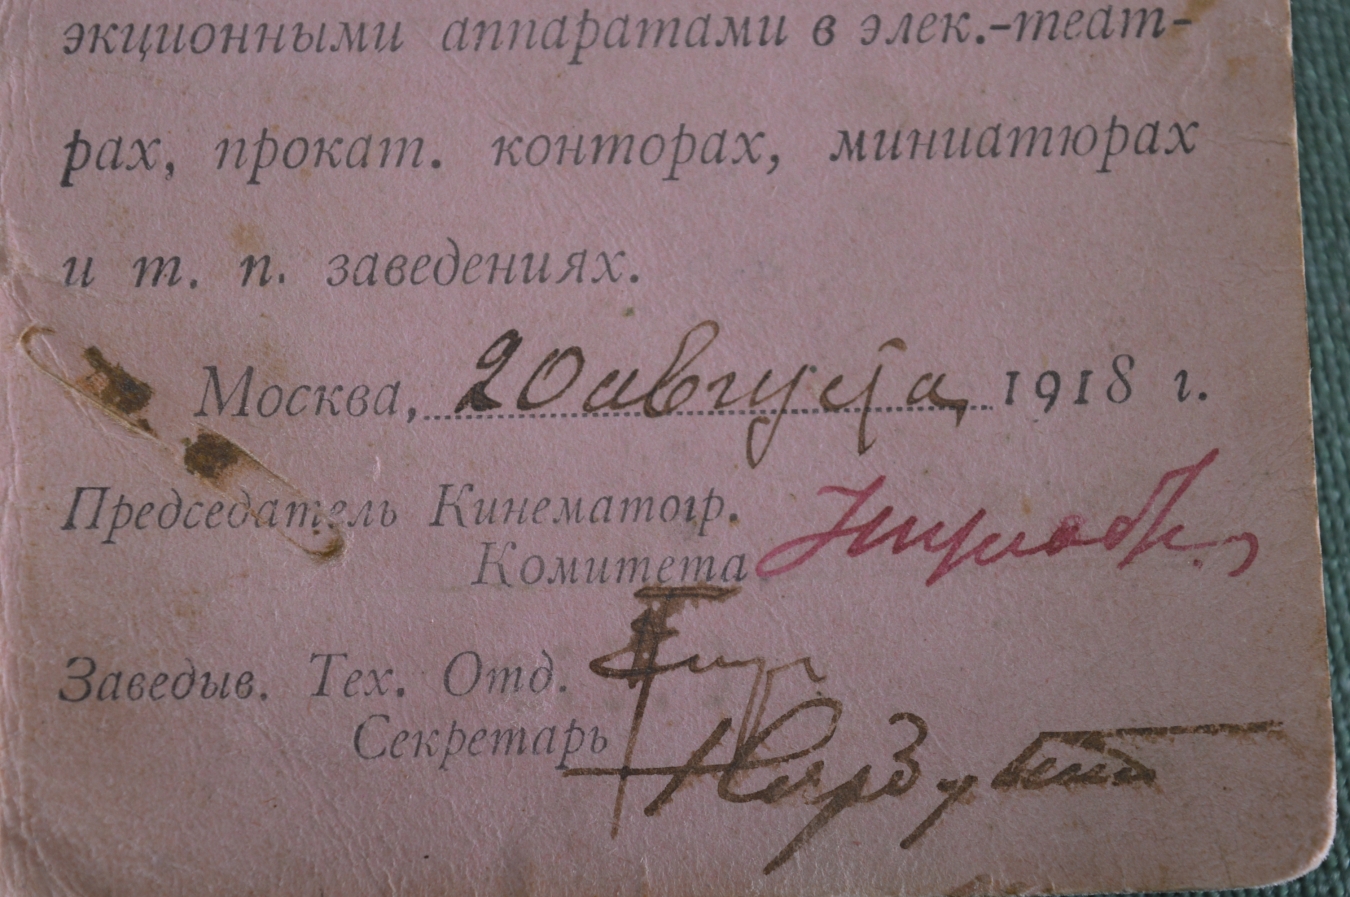 экционными аппаратами в элек.-театрах,
рах, прокат. конторах, миниатюрах
и т. п. заведениях.
Москва, 20 августа 1918 г.
Председатель Кинематогр.
Комитета
Заведыв. Тех. Отд.
Секретарь